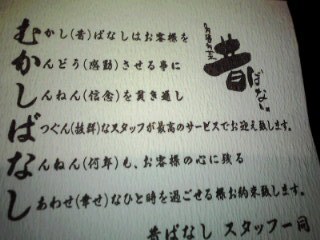 昔ばなし
むかし(昔)ばなしはお客様を
かんどう(感動)させる事に
しんねん(信念)を貫き通し
ばつぐん(抜群)なスタッフが最高のサービスでお迎え致します。
なんねん(何年)も、お客様の心に残る
しあわせ(幸せ)なひと時を過ごせる様お約束致します。
昔ばなし スタッフ一同